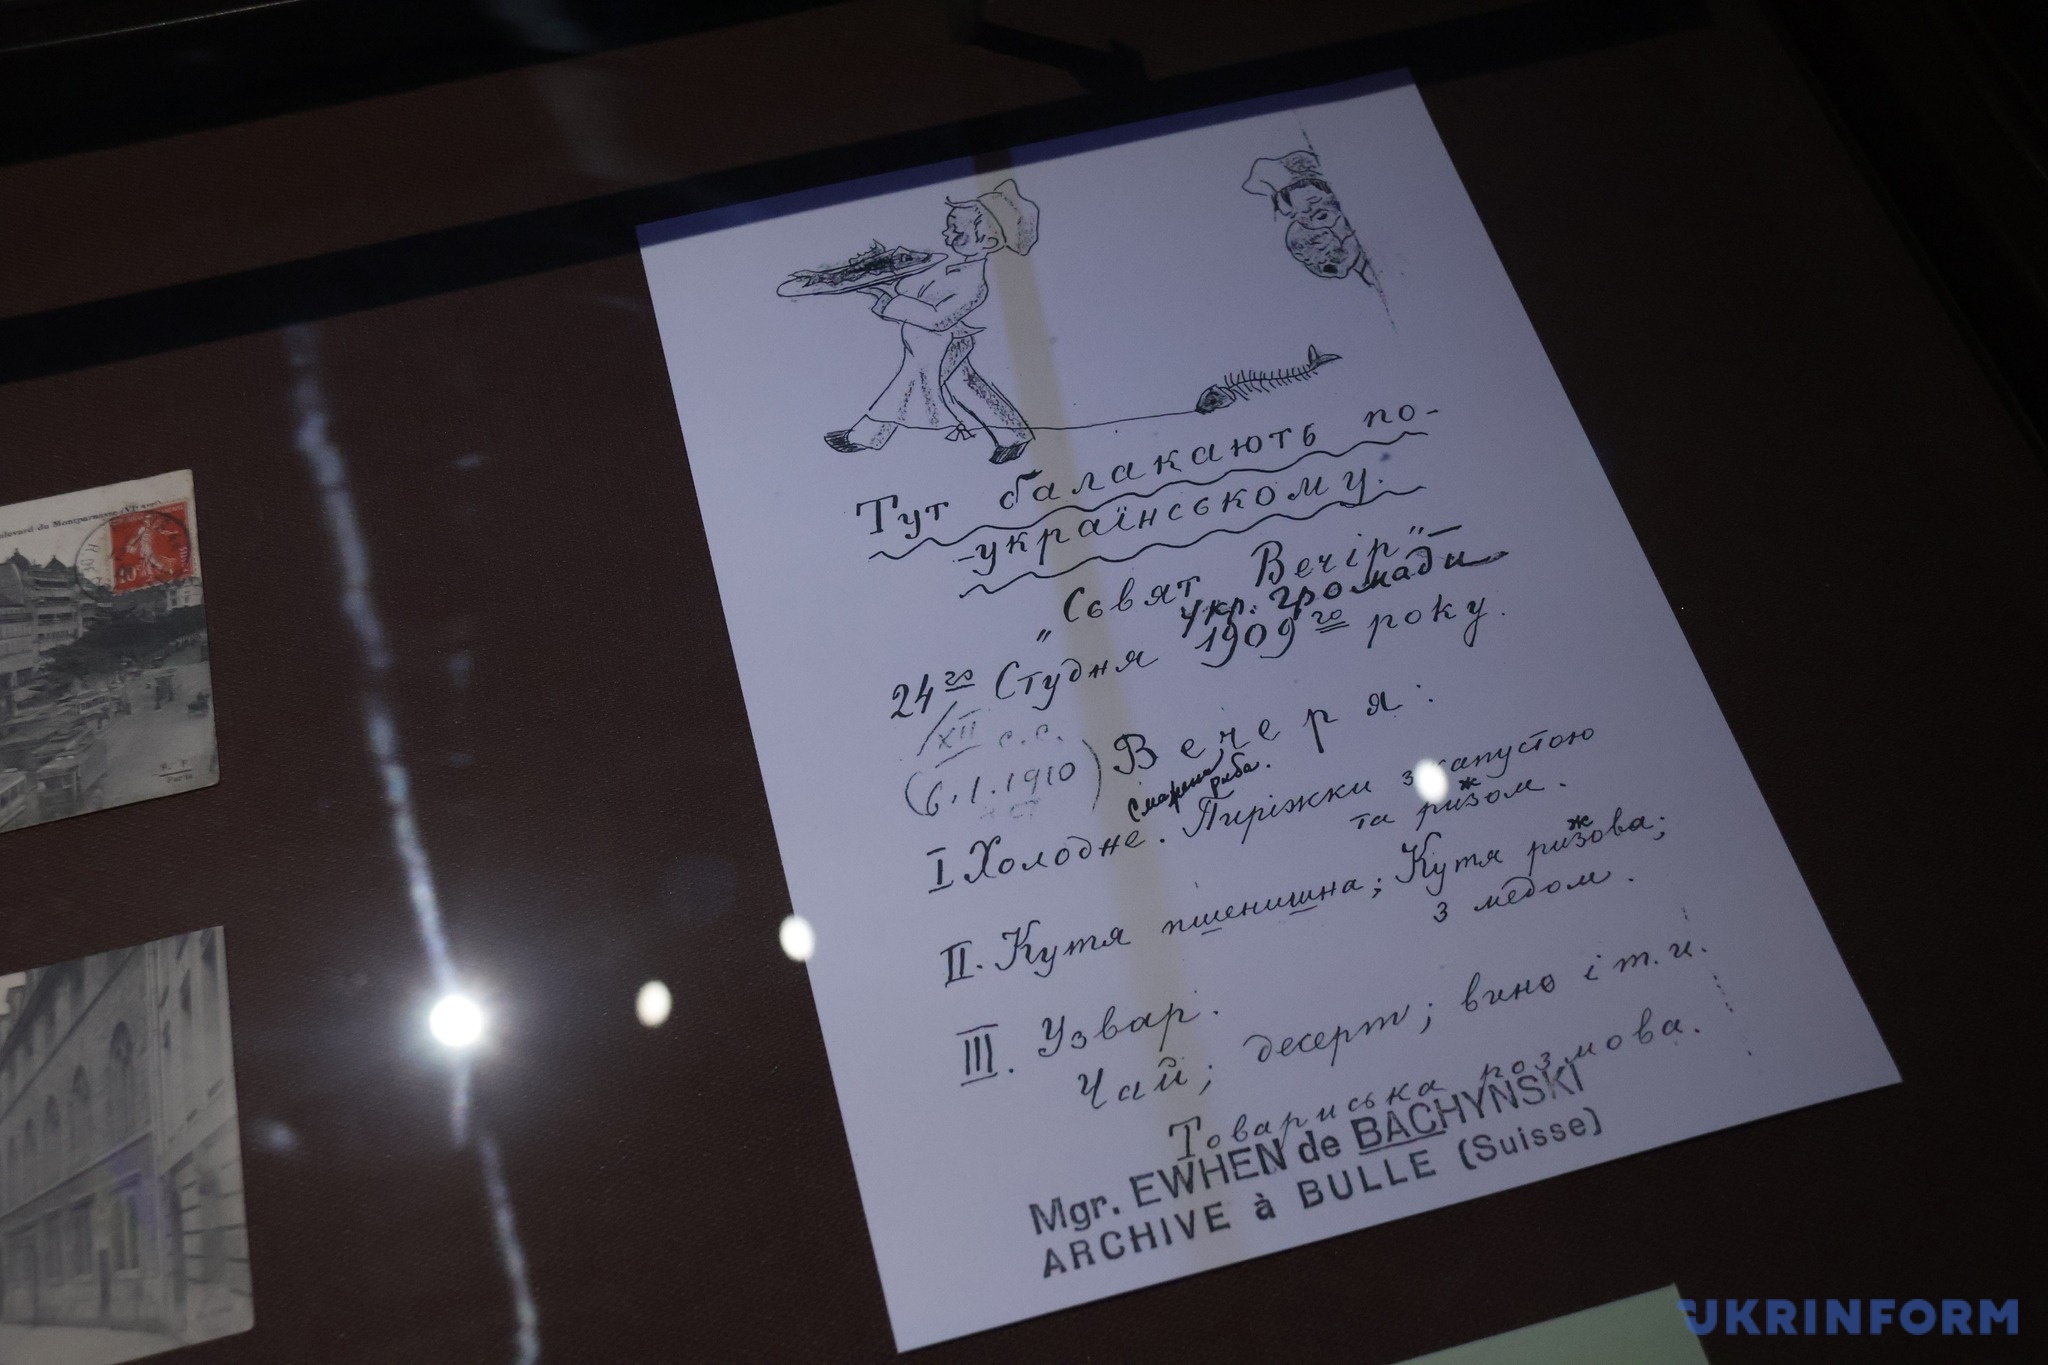 Тут балакають по-
-українському.
„Сьвят Вечір"—
Укр. громади
24го Студня 1909го року.
XII с.с.
(6.1.1910)
Вечеря:
Смажена риба.
I Холодне. Пиріжки з капустою
та рижом.
II. Кутя пшенишна; Кутя рижова;
з медом.
III. Узвар.
Чай; десерт; вино і т.и.
Товариська розмова.
Mgr. EWHEN de BACHYNSKI
ARCHIVE à BULLE (Suisse)
levard du Montparnasse (VIe arrt)
Paris
UKRINFORM